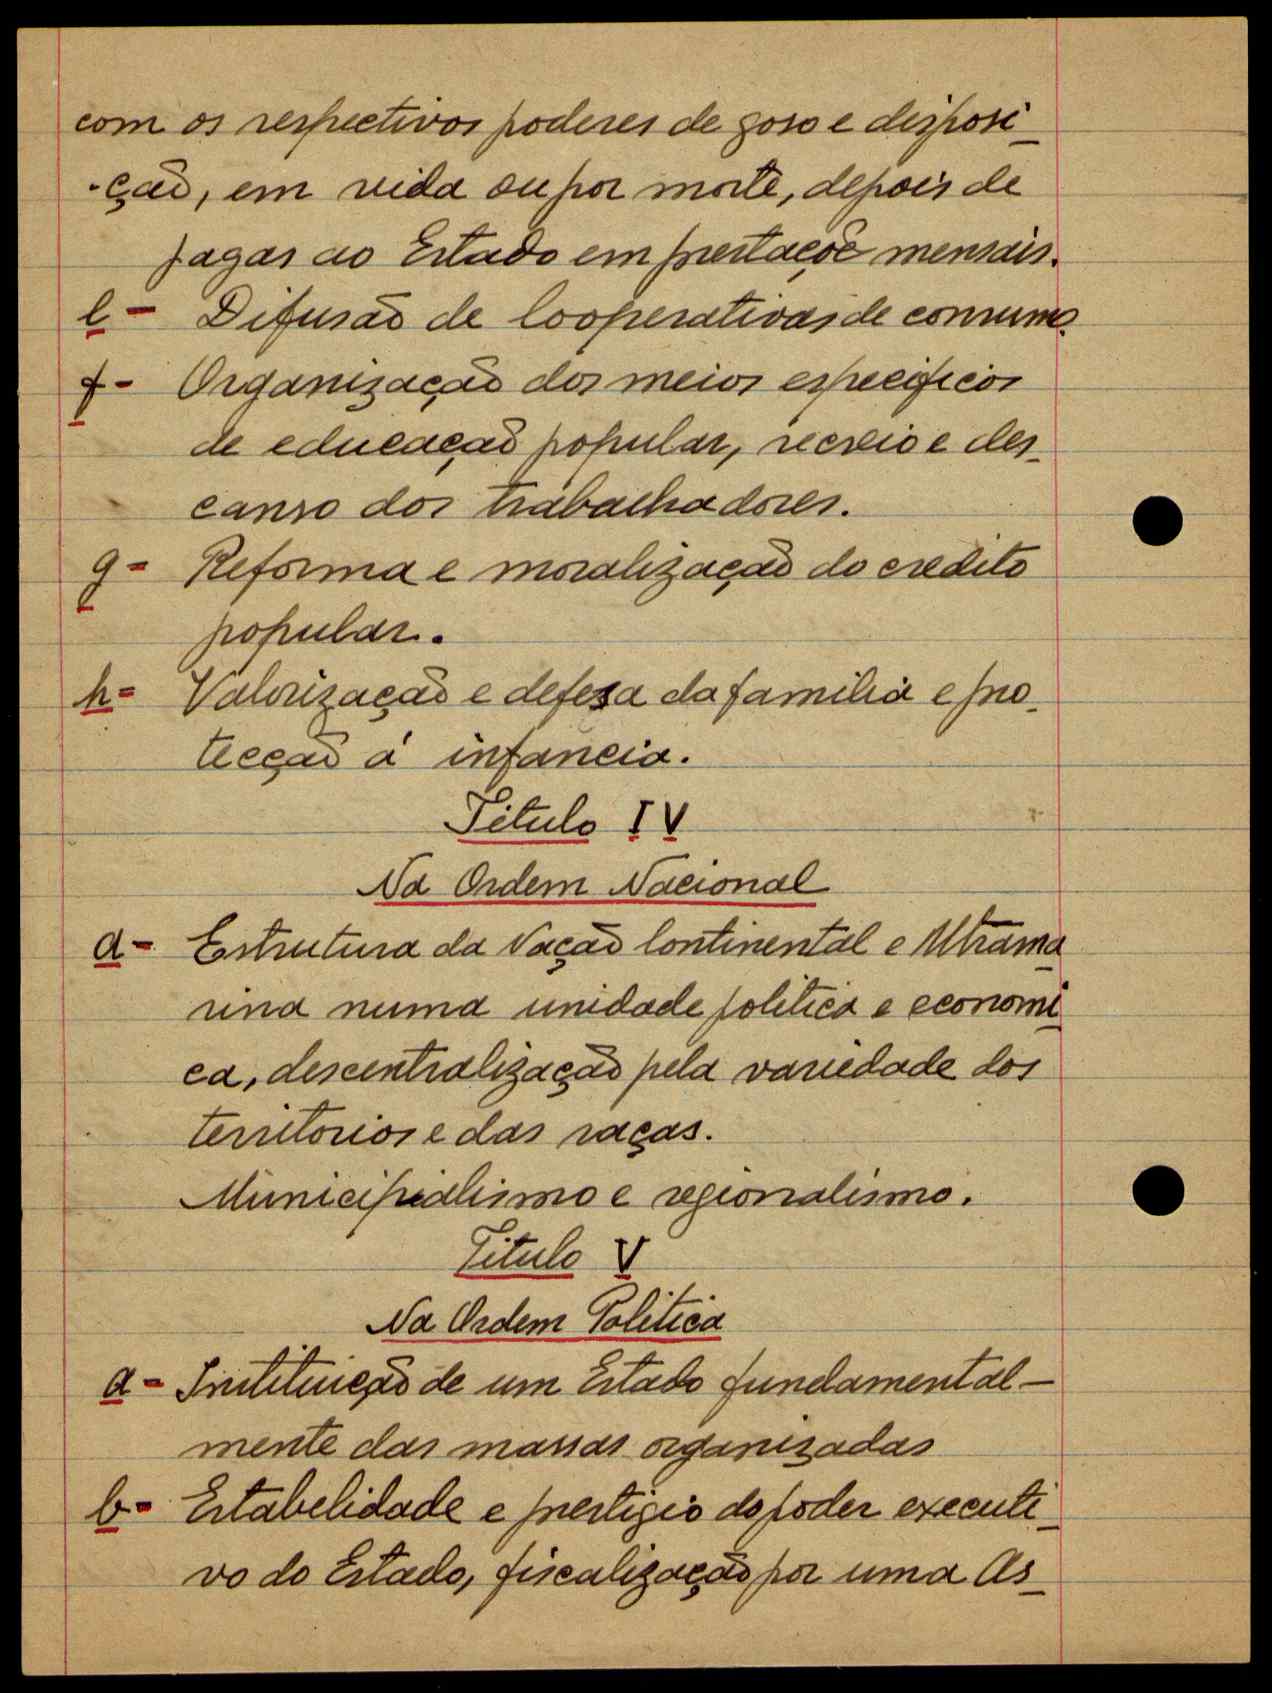 com os respectivos poderes de goso e disposi_
-ção, em vida ou por morte, depois de
pagas ao Estado em prestaçõe mensais.
e - Difusão de Cooperativas de consumo.
f - Organização dos meios especificos
de educação popular, recreio e des_
canso dos trabalhadores.
g - Reforma e moralização do credito
popular.
h - Valorização e defesa da familia e pro_
tecção á infancia.
Titulo IV
Na Ordem Nacional
a - Estrutura da Nação Continental e Ultrama_
rina numa unidade politica e economi_
ca, descentralização pela variedade dos
territorios e das raças.
Municipialismo e regionalismo.
Titulo V
Na Ordem Politica
a - Instituição de um Estado fundamental-
mente das massas organizadas
b - Estabelidade e prestigio do poder executi_
vo do Estado, fiscalização por uma As_